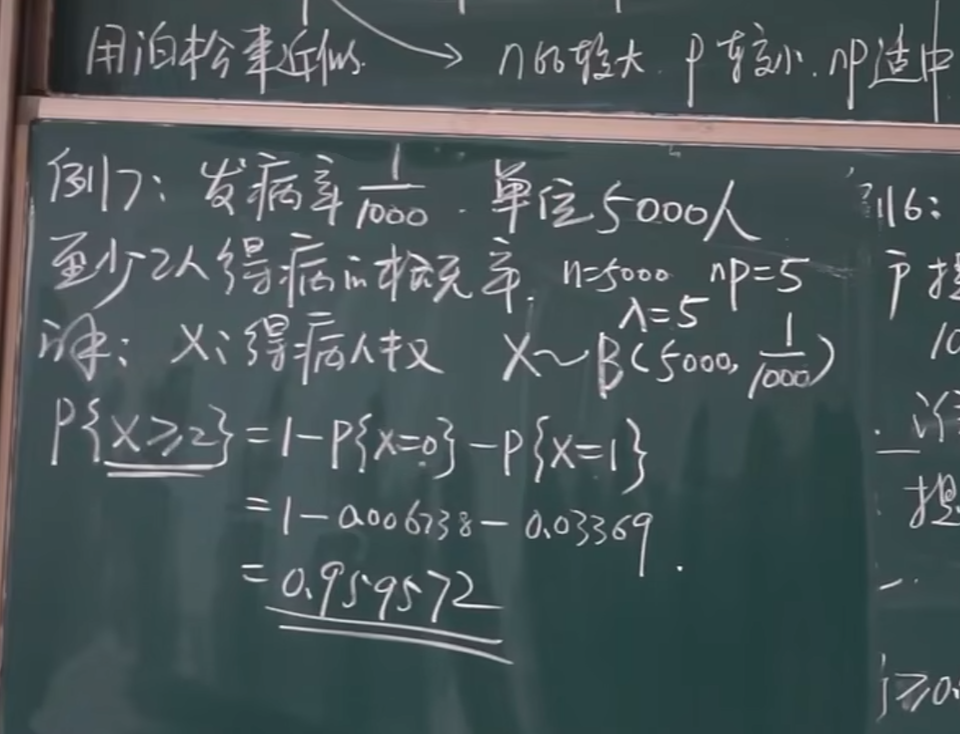 用泊松来近似 → n比较大. p较小. np适中
例7: 发病率 1/1000. 单位5000人
至少2人得病的概率. n=5000 np=5
λ=5
解: X: 得病人数 X~B(5000, 1/1000)
P{X≥2} = 1-P{X=0}-P{X=1}
= 1-0.006738-0.03369
= 0.959572.
例6:
≥0.